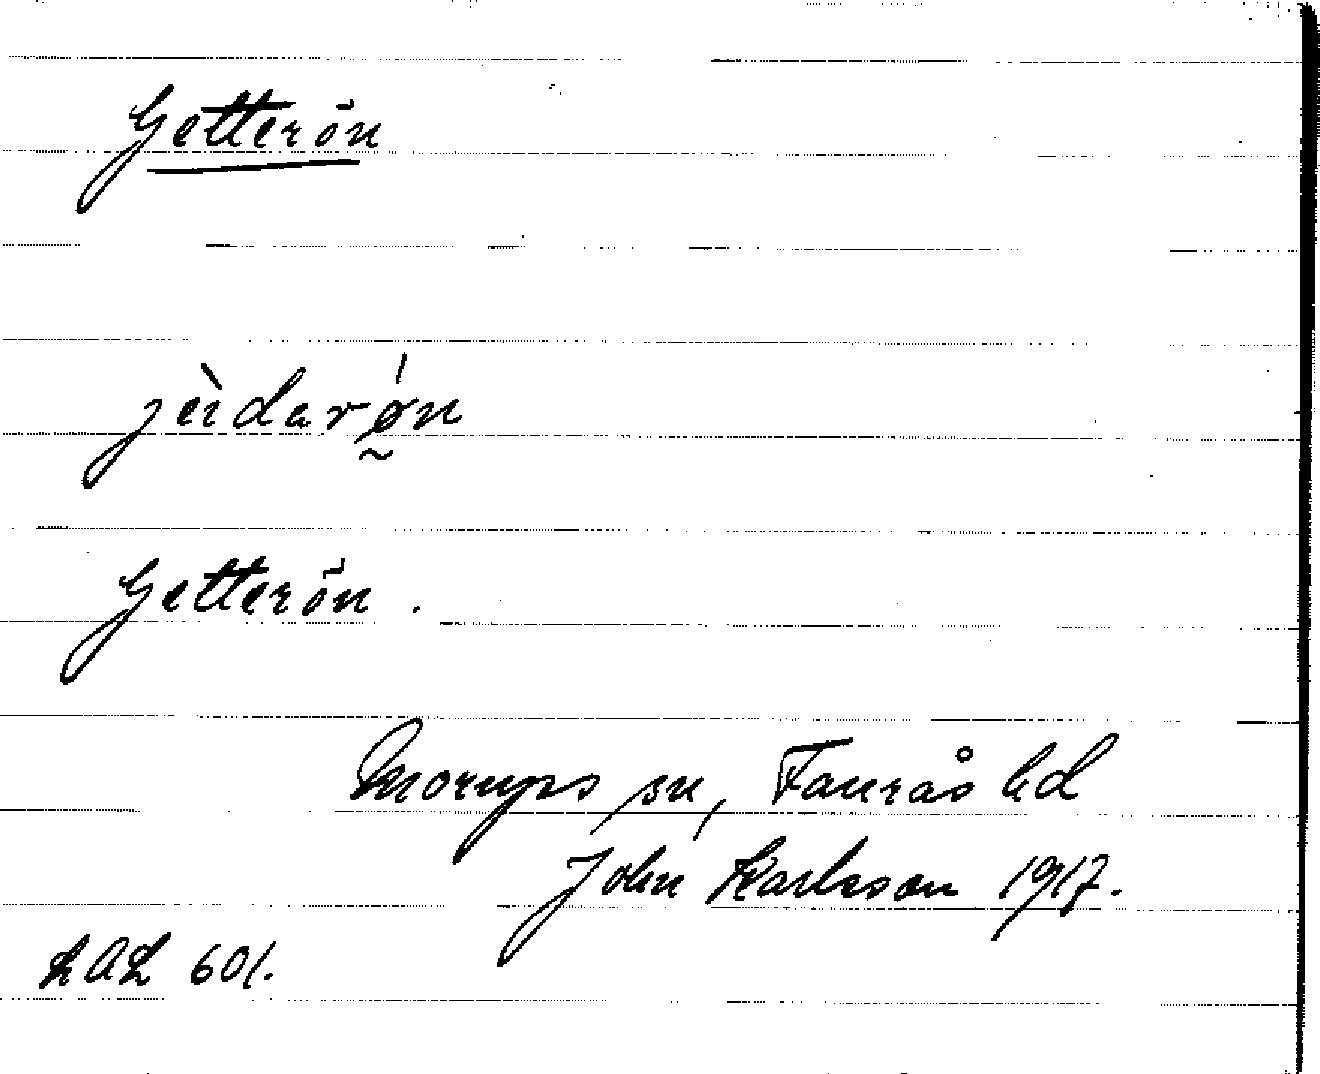 Getterön
jèdarǿn
Getterön.
Morups sn, Faurås hd
John Karlsson 1917.
LAL 601.